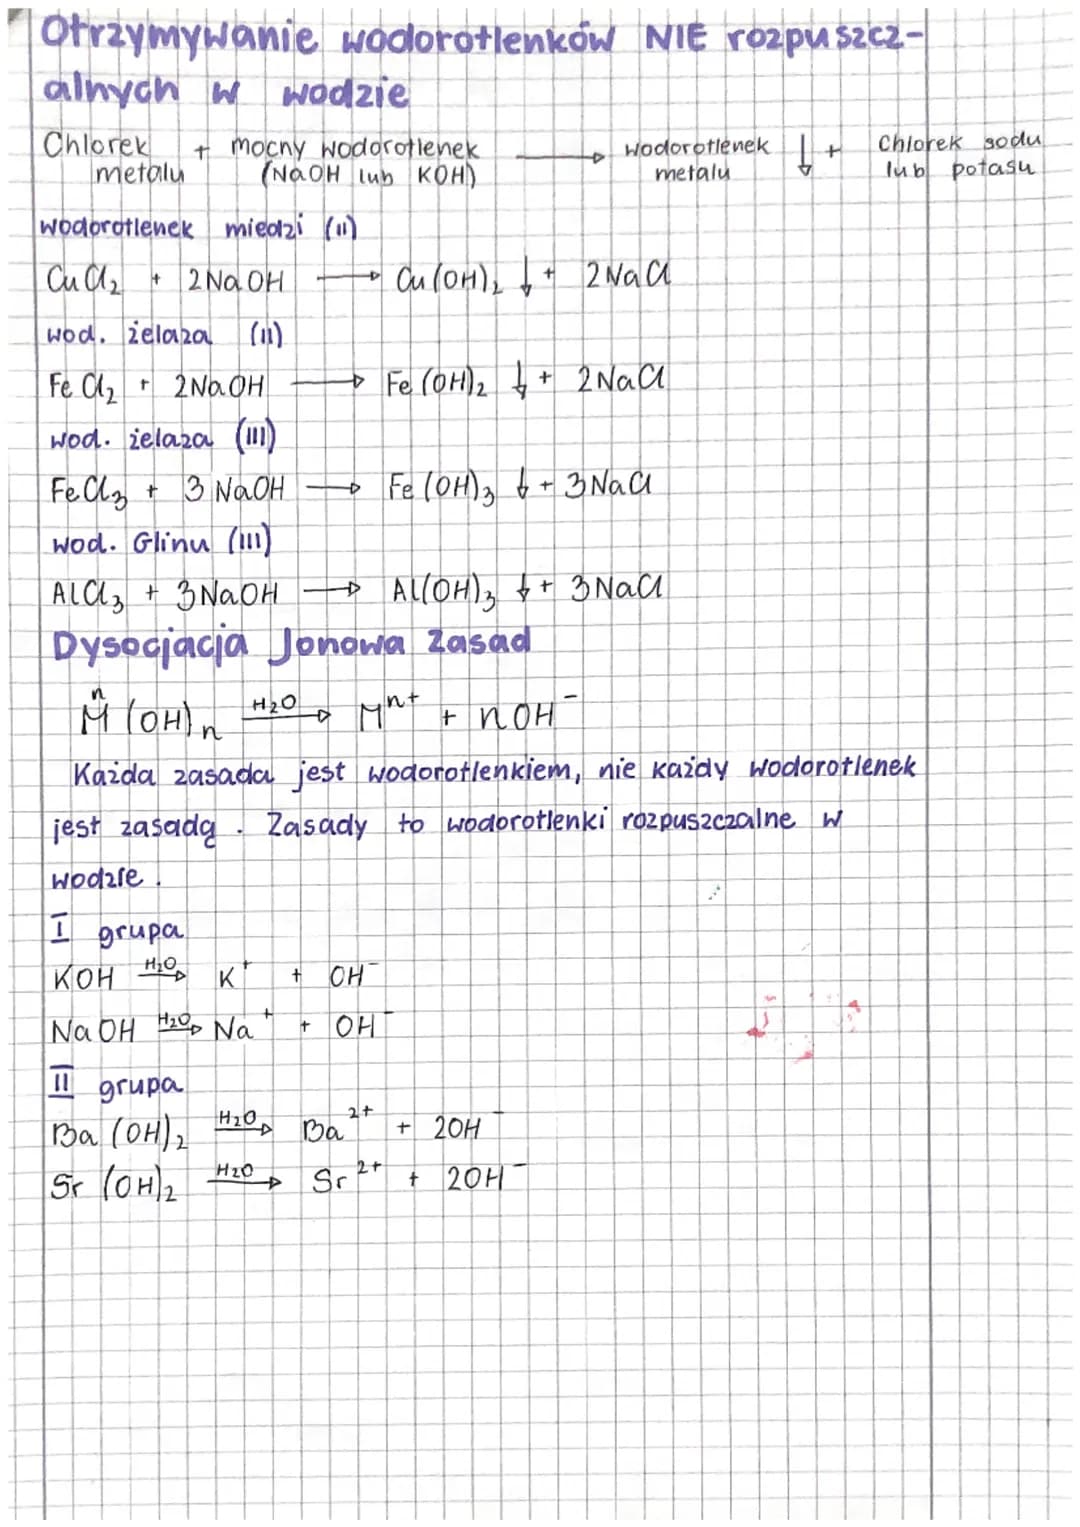 Otrzymywanie wodorotlenków NIE rozpuszcz-
alnych w wodzie
Chlorek metalu + mocny wodorotlenek (NaOH lub KOH) → wodorotlenek metalu ↓ + Chlorek sodu lub potasu
wodorotlenek miedzi (II)
CuCl₂ + 2NaOH → Cu(OH)₂ ↓ + 2NaCl
wod. żelaza (II)
FeCl₂ + 2NaOH → Fe(OH)₂ ↓ + 2NaCl
wod. żelaza (III)
FeCl₃ + 3NaOH → Fe(OH)₃ ↓ + 3NaCl
wod. Glinu (III)
AlCl₃ + 3NaOH → Al(OH)₃ ↓ + 3NaCl
Dysocjacja Jonowa Zasad
Mⁿ(OH)ₙ H₂O→ Mⁿ⁺ + nOH⁻
Każda zasada jest wodorotlenkiem, nie każdy wodorotlenek
jest zasadą. Zasady to wodorotlenki rozpuszczalne w
wodzie.
I grupa
KOH H₂O→ K⁺ + OH⁻
NaOH H₂O→ Na⁺ + OH⁻
II grupa
Ba(OH)₂ H₂O→ Ba²⁺ + 2OH⁻
Sr(OH)₂ H₂O→ Sr²⁺ + 2OH⁻